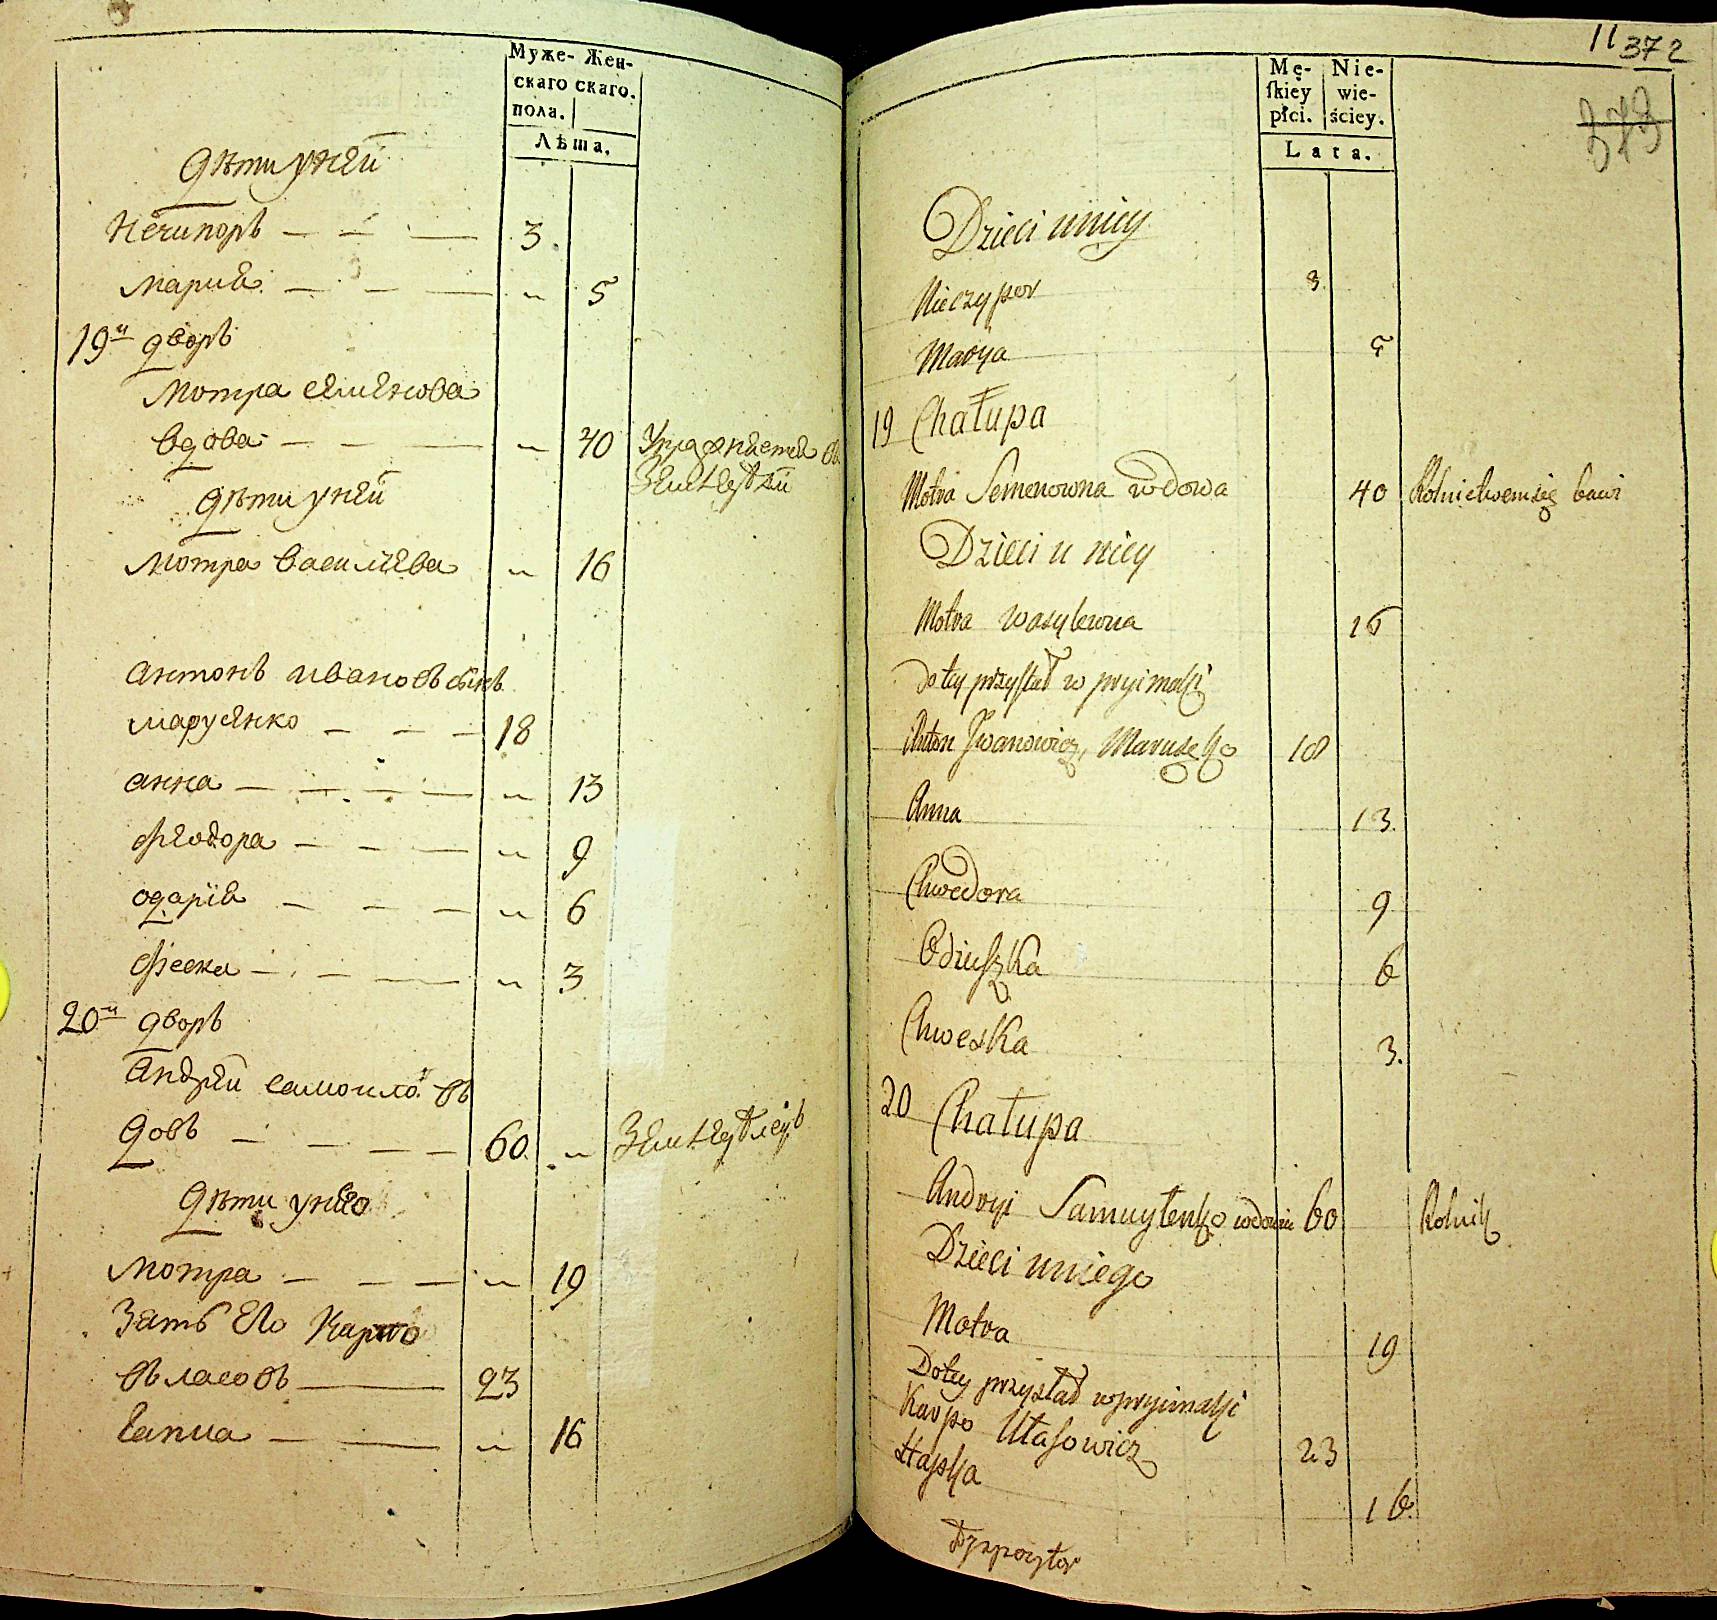 Муже- Жен-
скаго скаго.
пола.
Лѣта.
Дѣти уней
Нечипоръ — — — 3.
Мария — — — „ 5
19й дворъ
Мотра семенова
вдова — — — „ 40 Упражняется въ
земледѣлїи
Дѣти уней
Мотра василиева „ 16
Антонъ ивановъ сынъ
марусенко — — — 18
анна — — — — „ 13
Феодора — — — „ 9
одарїя — — — „ 6
Феска — — — „ 3
20й дворъ
Андрей самоиловъ въ
довъ — — — — 60 „ Земледѣлецъ
Дѣти унего
Мотра — — — „ 19
Зать его Карпо
власовъ — 23
Гапка — — „ 16
11 372
373
Mę- Nie-
skiey wie-
płci. ściey.
Lata.
Dzieci unicy
Nieczypor 3
Marya 5
19 Chałupa
Motra Semenowna wdowa 40 Rolnictwem się bawi
Dzieci u nicy
Motra wasylewna 16
do tey przystał w pryimaki
Anton Iwanowicz, Marusenko 18
Anna 13.
Chwedora 9
Odziuszka 6
Chweska 3.
20 Chałupa
Andryi Samuylenko wdowiec 60 Rolnik
Dzieci uniego
Motra 19
Do tey przystał w pryimaki
Karpo Ułasowicz 23
Hapka 16.